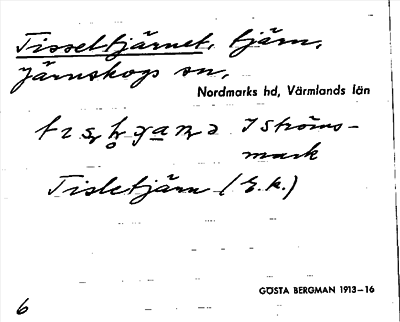 Tisseltjärnet, tjärn,
Järnskogs sn,
Nordmarks hd, Värmlands län
I Ströms-
mark
Tisletjärn (E.k.)
GÖSTA BERGMAN 1913–16
6